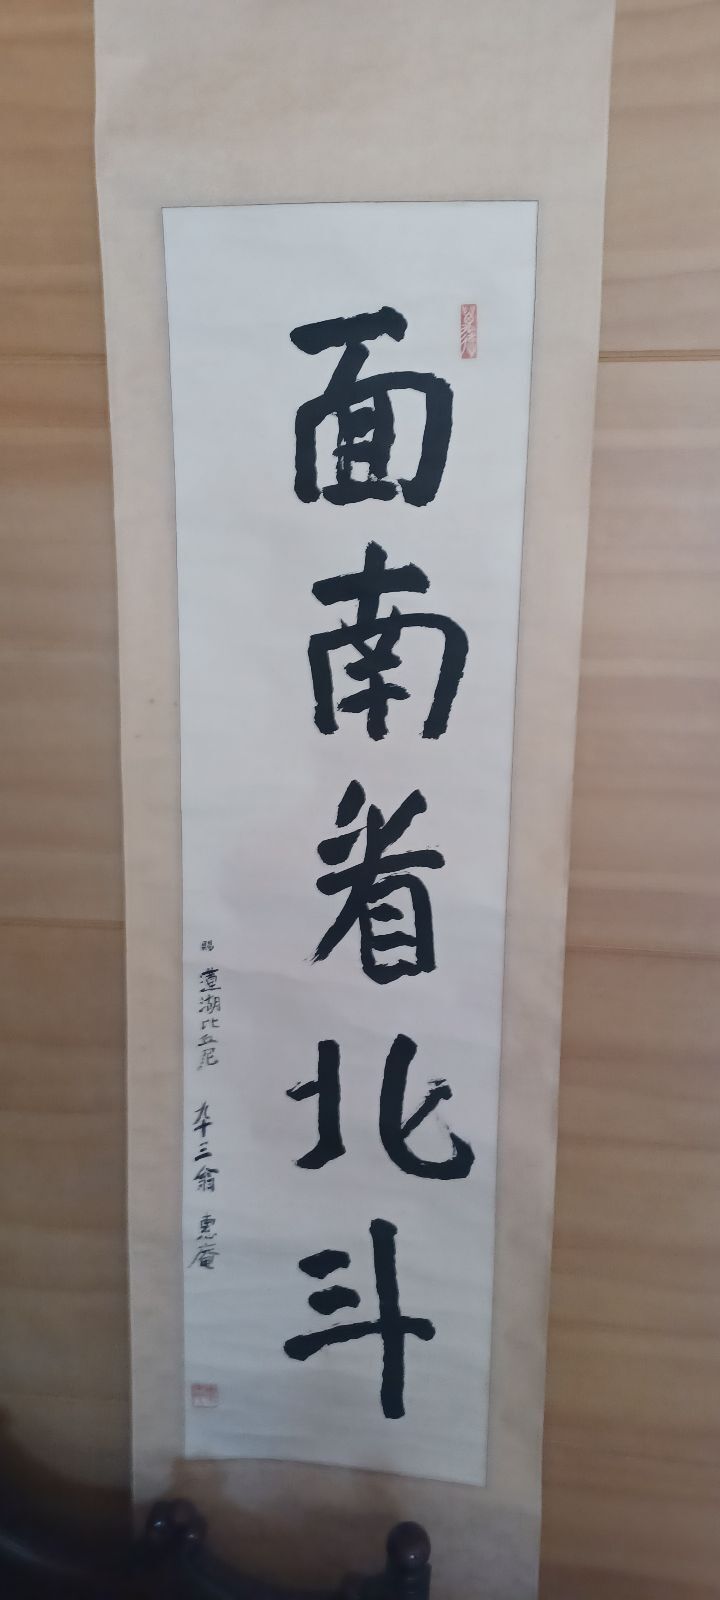 面南看北斗
賜 蓮湖比丘尼 九十三翁 惠庵